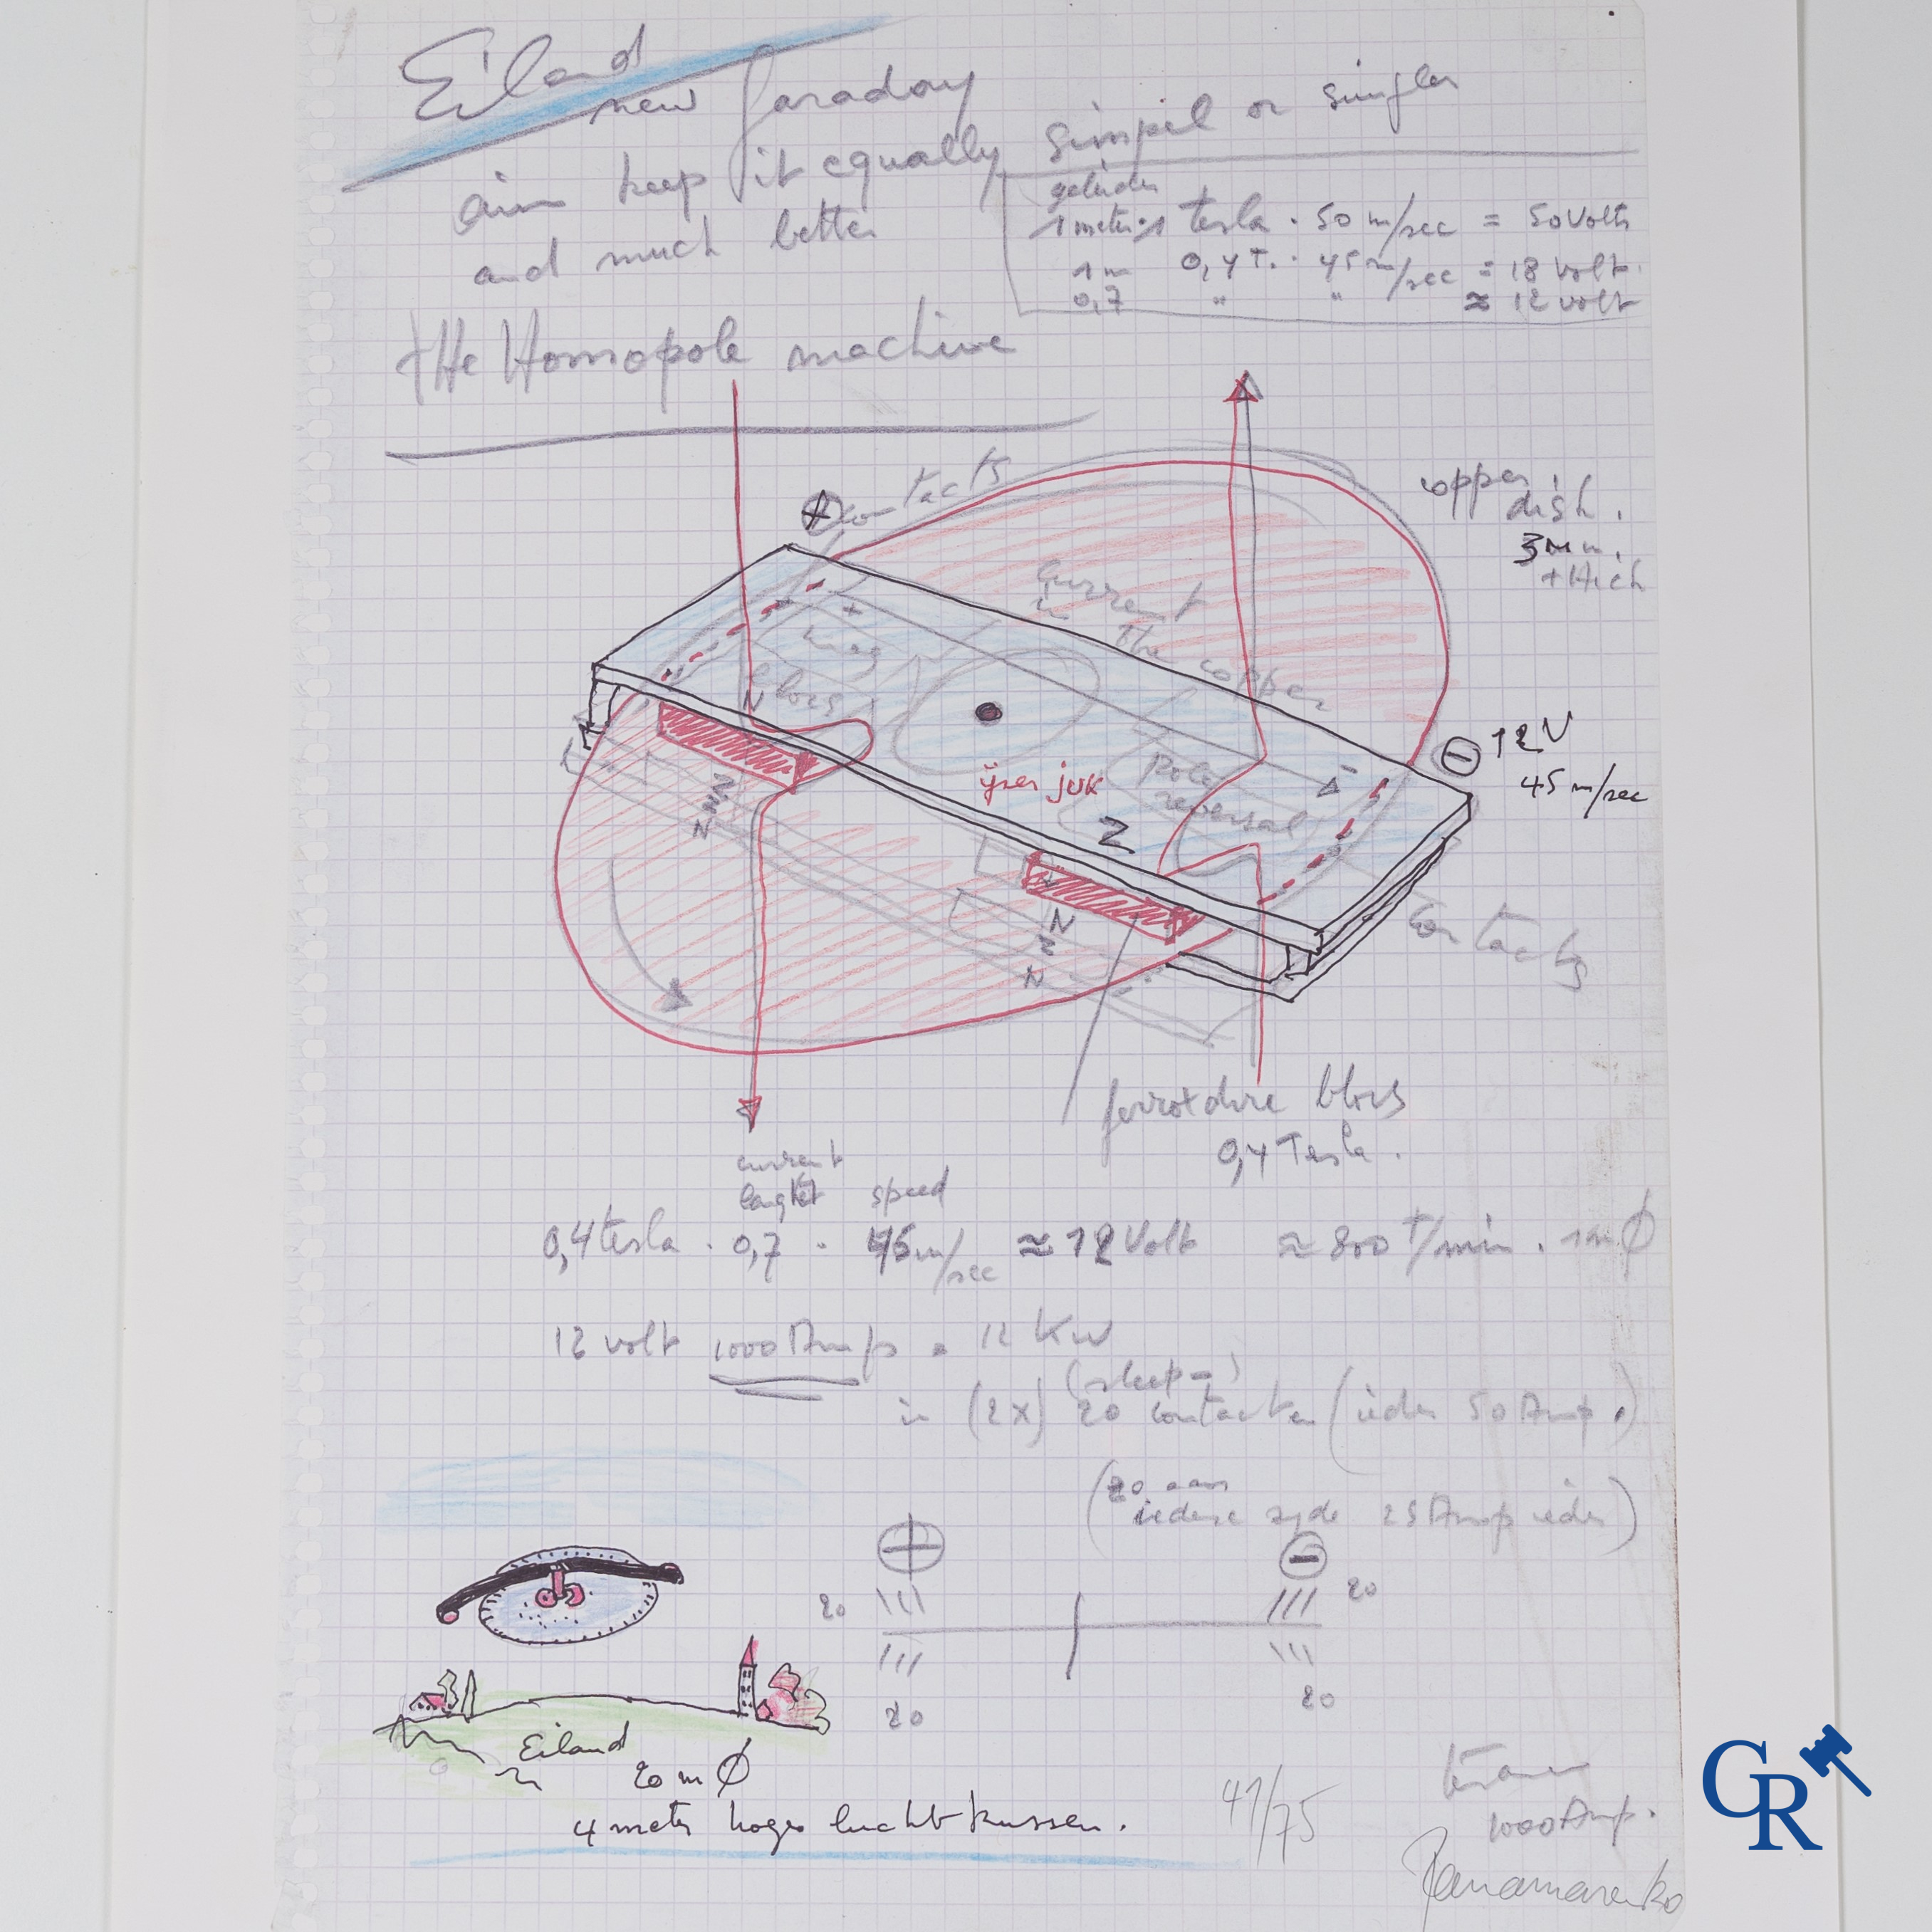 Eiland
new faraday
aim keep it equally simpel or simpler
and much better
geleider
1 meter · 1 tesla · 50 m/sec = 50 Volts
1 m 0,4 T. · 45 m/sec = 18 volt.
0,7 " " ≈ 12 volt
tHe Homopole machine
⊕ contacts
copper
dish.
3 m m.
tHick
current
in
the copper
+
mag
blocs
N
N
Z
N
Z
N
ÿzer juk
Pole
reversal
-
Z
⊖ 12V
45 m/sec
N
N
Z
N
contacts
ferroxdure blocs
0,4 Tesla.
current
lenght speed
0,4 tesla · 0,7 · 45 m/sec ≈ 12 Volt ≈ 800 T/min. 1m Ø
12 volt 1000 Amps = 12 KW
(sleep-)
in (2x) 20 contacten (ieder 50 Amp.)
(20 aan
iedere zyde 25 Amp ieder)
⊕ ⊖
20 20
20 20
Eiland
20 m Ø
4 meter hoger luchtkussen.
41/75
1000 Amp.
Panamarenko
CR